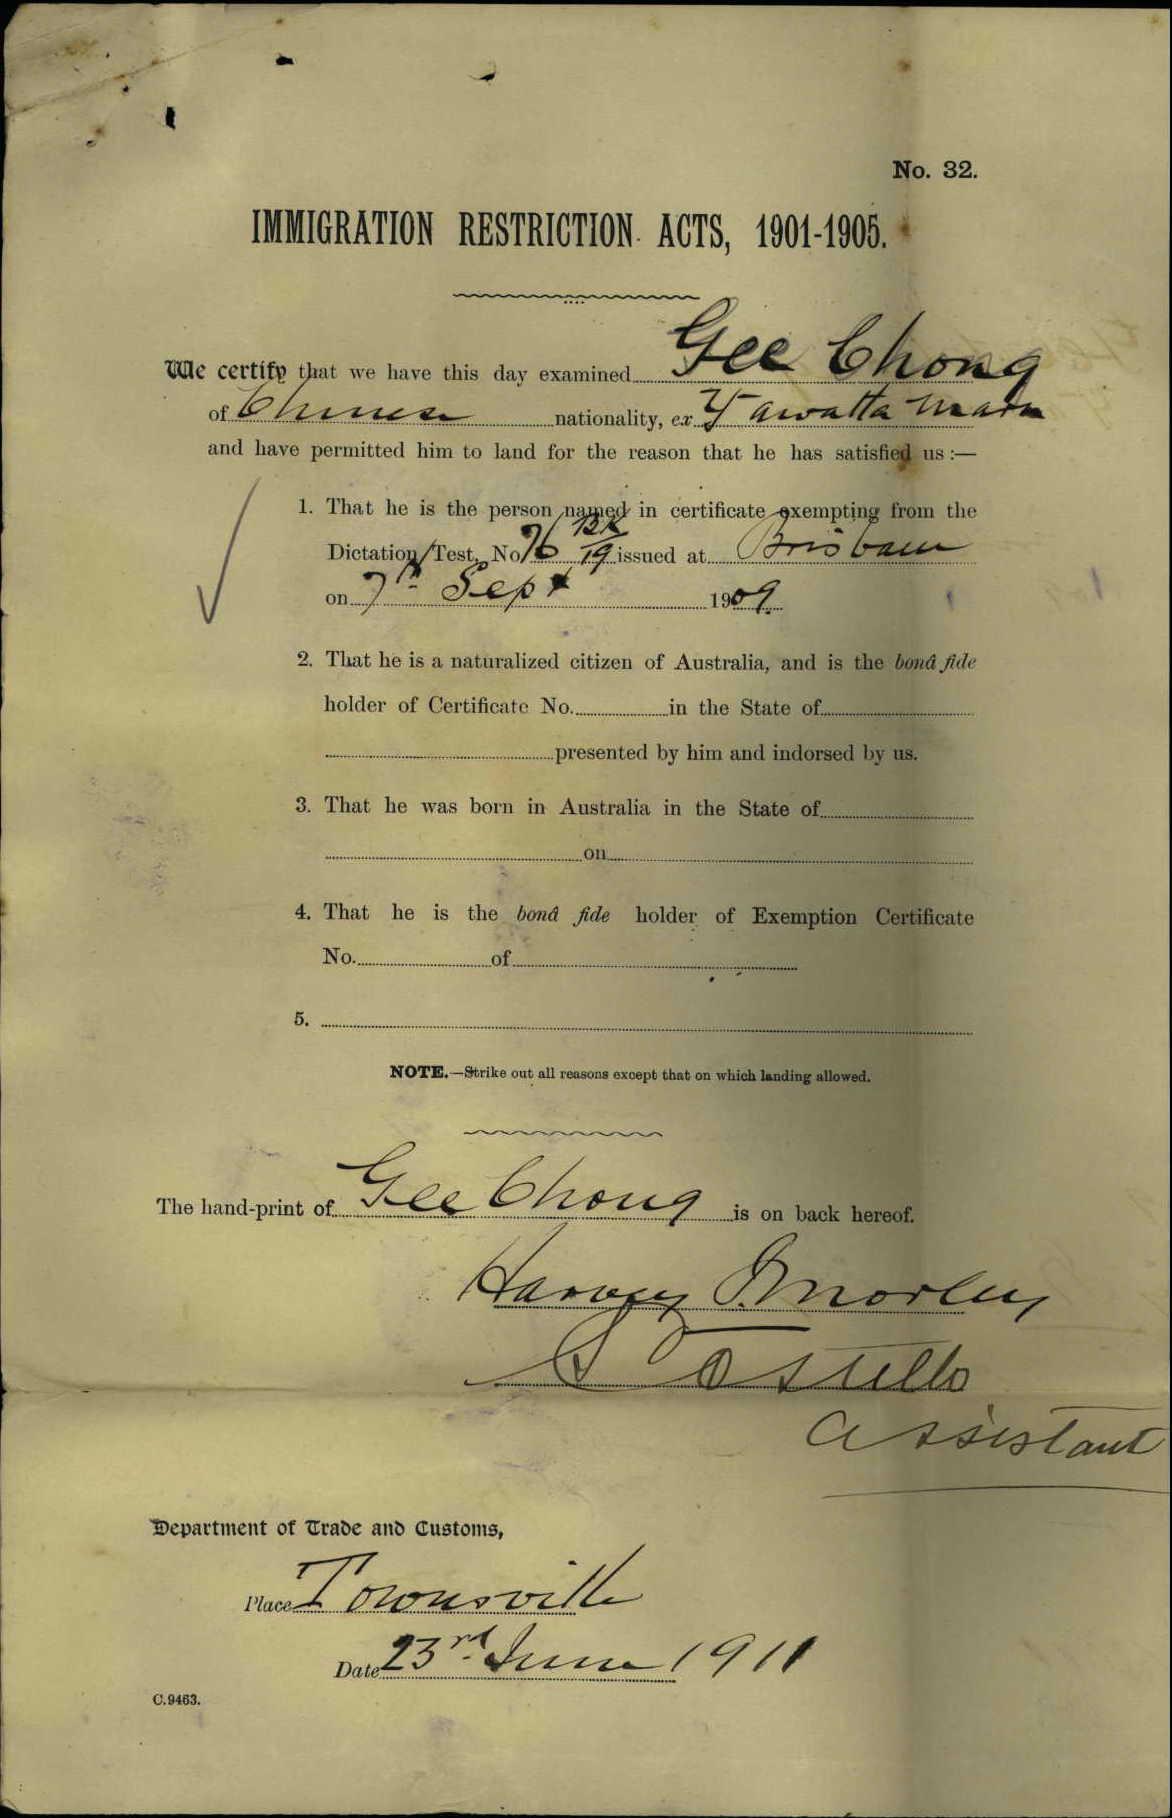 No. 32.
IMMIGRATION RESTRICTION ACTS, 1901-1905.
We certify that we have this day examined Gee Chong
of Chinese nationality, ex Yawatta Maru
and have permitted him to land for the reason that he has satisfied us :—
1. That he is the person named in certificate exempting from the
Dictation Test, No 76 BK/19 issued at Brisbane
on 7th Sept 1909.
2. That he is a naturalized citizen of Australia, and is the bonâ fide
holder of Certificate No. in the State of
presented by him and indorsed by us.
3. That he was born in Australia in the State of
on
4. That he is the bonâ fide holder of Exemption Certificate
No. of
5.
NOTE.—Strike out all reasons except that on which landing allowed.
The hand-print of Gee Chong is on back hereof.
Harvey Morley
Costello
Assistant
Department of Trade and Customs,
Place Townsville
Date 23rd June 1911
C.9463.